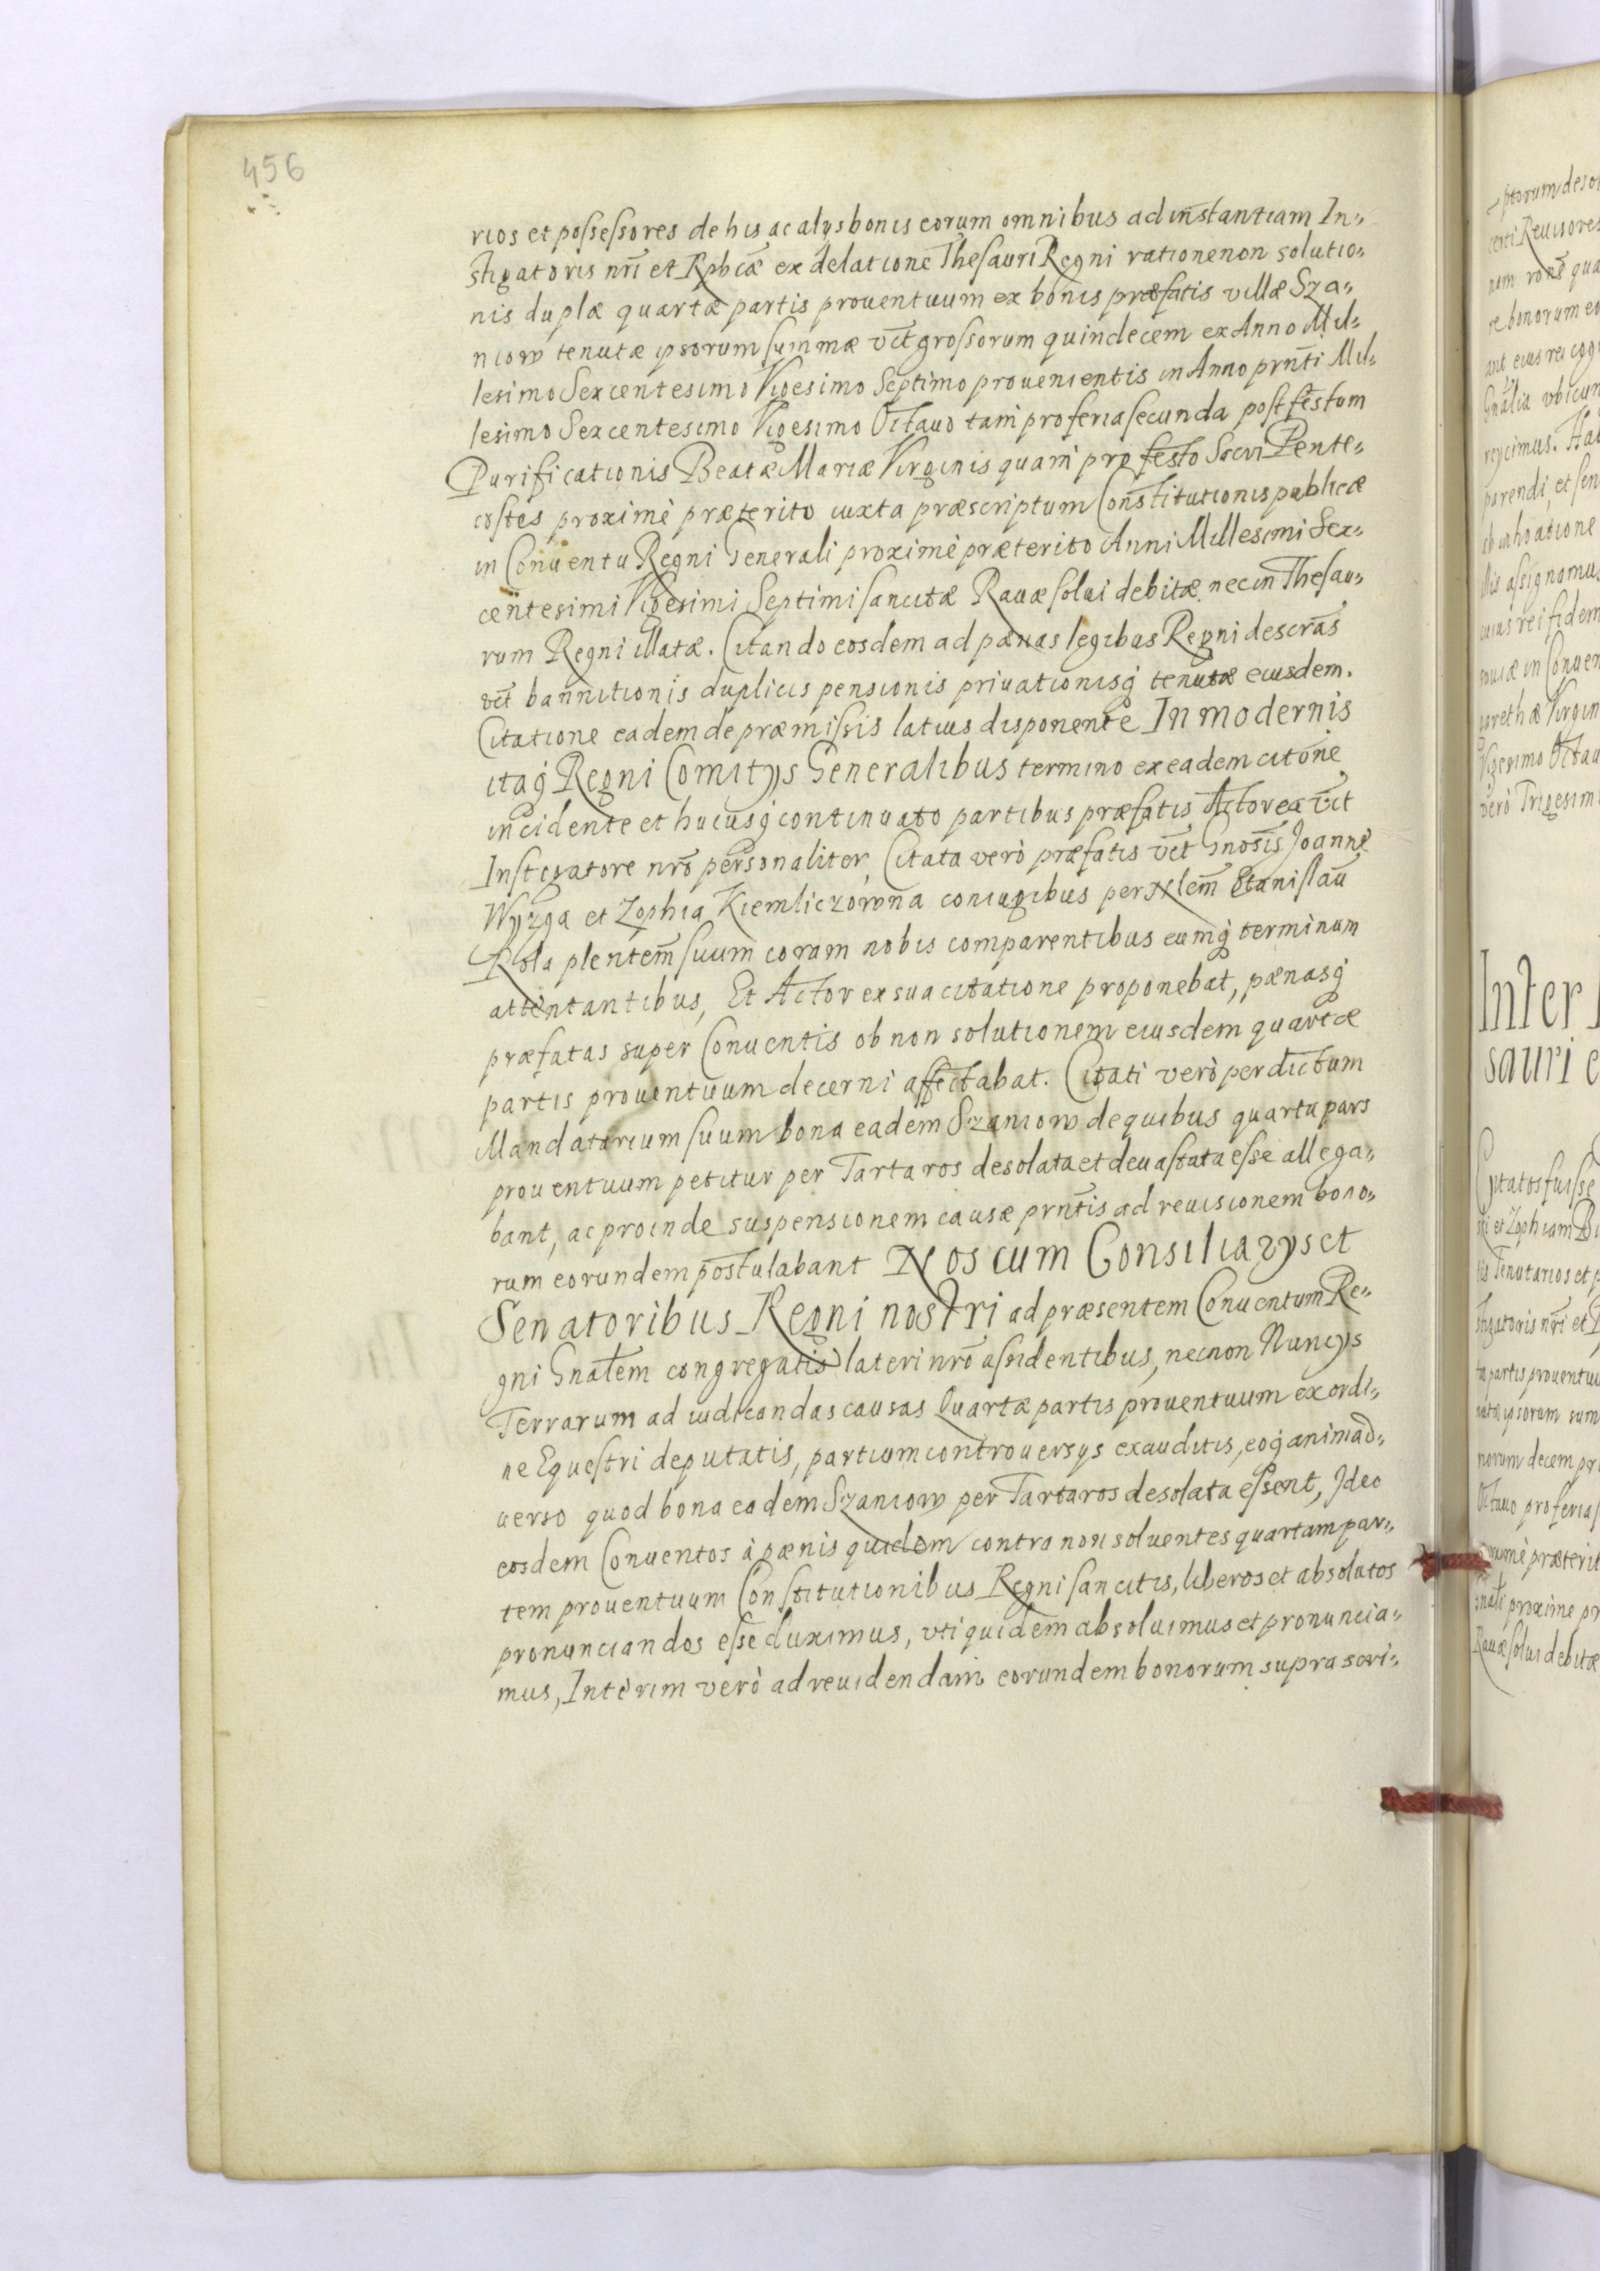 456
rios et possessores de his ac alys bonis eorum omnibus ad instantiam In-
stigatoris nri et Rpbcæ ex delatione Thesauri Regni ratione non solutio-
nis duplæ quartæ partis prouentuum ex bonis præfatis villæ Sza-
niow tenutæ ipsorum summæ vct grossorum quindecem ex Anno Mil-
lesimo Sexcentesimo Vigesimo Septimo prouenientis in Anno prnti Mil-
lesimo Sexcentesimo Vigesimo Octauo tam pro feria secunda post festum
Purificationis Beatæ Mariæ Virginis quam pro festo Sacri Pente-
costes proximè præterito iuxta præscriptum Constitutionis publicæ
in Conuentu Regni Generali proximè præterito Anni Millesimi Sex-
centesimi Vigesimi Septimi sancitæ Rauæ solui debitæ nec in Thesau-
rum Regni illatæ. Citando eosdem ad pænas legibus Regni descras
vct bannitionis duplicis pensionis priuationisq tenutæ eiusdem.
Citatione eadem de præmissis latius disponente In modernis
itaq Regni Comitys Generalibus termino ex eadem citone
incidente et hucusq continuato partibus præfatis Actorea vct
Instigatore nro personaliter, Citata verò præfatis vct Gnosis Joanne
Wyzga et Zophia Kiemliczowna coniugibus per Stanislau
Rola plentem suum coram nobis comparentibus eumq terminum
attentantibus, Et Actor ex sua citatione proponebat, pænasq
præfatas super Conuentis ob non solutionem eiusdem quartæ
partis prouentuum decerni affectabat. Citati verò per dictum
Mandatarium suum bona eadem Szaniow de quibus quarta pars
prouentuum petitur per Tartaros desolata et deuastata esse allega-
bant, ac proinde suspensionem causæ prntis ad reuisionem bono-
rum eorundem postulabant Nos cum Consiliarys et
Senatoribus Regni nostri ad præsentem Conuentum Re-
gni Gnalem congregatis lateri nro assidentibus, necnon Nuncys
Terrarum ad iudicandas causas Quartæ partis prouentuum ex ordi-
ne Equestri deputatis, partium controuersys exauditis, eoq animad-
uerso quod bona eadem Szaniow per Tartaros desolata essent, Ideo
eosdem Conuentos à pænis quidem contra non soluentes quartam par-
tem prouentuum Constitutionibus Regni sancitis, liberos et absolutos
pronunciandos esse duximus, vti quidem absoluimus et pronuncia-
mus, Interim verò ad reuidendam eorundem bonorum supra scri-
Inter
sauri
Citatos fuisse